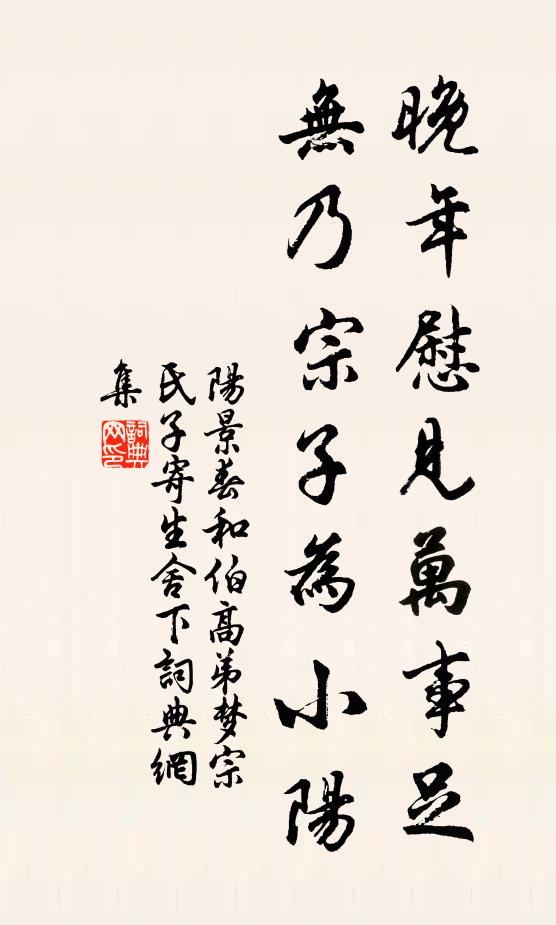 晚年慰見萬事足
無乃宗子為小陽
陽景春和伯高弟梦宗
氏子寄生舍下詞典網
集
詞典网印